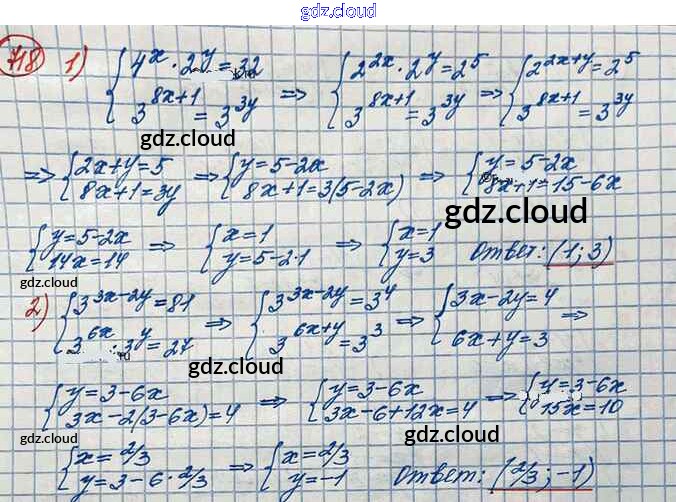 gdz.cloud
718 1) {4^x · 2^y = 32 ; 3^{8x+1} = 3^{3y} => {2^{2x} · 2^y = 2^5 ; 3^{8x+1} = 3^{3y} => {2^{2x+y} = 2^5 ; 3^{8x+1} = 3^{3y}
gdz.cloud
gdz.cloud
=> {2x+y=5 ; 8x+1=3y => {y=5-2x ; 8x+1=3(5-2x) => {y=5-2x ; 8x+1=15-6x
gdz.cloud
{y=5-2x ; 14x=14 => {x=1 ; y=5-2·1 => {x=1 ; y=3 Ответ: (1; 3)
gdz.cloud
2) {3^{3x-2y} = 81 ; 3^{6x} · 3^y = 27 => {3^{3x-2y} = 3^4 ; 3^{6x+y} = 3^3 => {3x-2y=4 ; 6x+y=3 =>
gdz.cloud
{y=3-6x ; 3x-2(3-6x)=4 => {y=3-6x ; 3x-6+12x=4 => {y=3-6x ; 15x=10
gdz.cloud
gdz.cloud
{x=2/3 ; y=3-6·2/3 => {x=2/3 ; y=-1 Ответ: (2/3; -1)
gdz.cloud